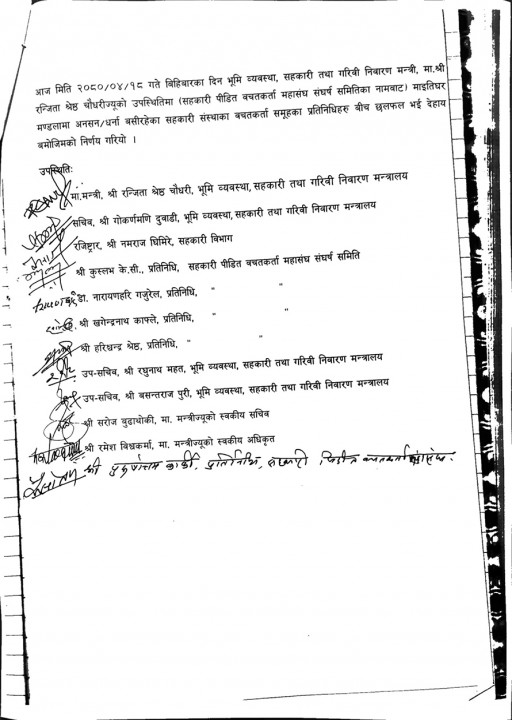 आज मिति २०८०/०४/१८ गते बिहिबारका दिन भूमि व्यवस्था, सहकारी तथा गरिवी निवारण मन्त्री, मा.श्री
रन्जिता श्रेष्ठ चौधरीज्यूको उपस्थितिमा (सहकारी पीडित बचतकर्ता महासंघ संघर्ष समितिका नामबाट) माइतिघर
मण्डलामा अनसन/धर्ना बसीरहेका सहकारी संस्थाका बचतकर्ता समूहका प्रतिनिधिहरु बीच छलफल भई देहाय
बमोजिमको निर्णय गरियो ।
उपस्थितिः
मा.मन्त्री, श्री रन्जिता श्रेष्ठ चौधरी, भूमि व्यवस्था, सहकारी तथा गरिवी निवारण मन्त्रालय
सचिव, श्री गोकर्णमणि दुवाडी, भूमि व्यवस्था,सहकारी तथा गरिवी निवारण मन्त्रालय
रजिष्ट्रार, श्री नमराज घिमिरे, सहकारी विभाग
श्री कुस्लभ के.सी., प्रतिनिधि, सहकारी पीडित बचतकर्ता महासंघ संघर्ष समिति
डा. नारायणहरि गजुरेल, प्रतिनिधि, " "
श्री खगेन्द्रनाथ काफ्ले, प्रतिनिधि, " "
श्री हरिश्चन्द्र श्रेष्ठ, प्रतिनिधि, " "
उप-सचिव, श्री रघुनाथ महत, भूमि व्यवस्था, सहकारी तथा गरिवी निवारण मन्त्रालय
उप-सचिव, श्री बसन्तराज पुरी, भूमि व्यवस्था, सहकारी तथा गरिवी निवारण मन्त्रालय
श्री सरोज बुढाथोकी, मा. मन्त्रीज्यूको स्वकीय सचिव
श्री रमेश विश्वकर्मा, मा. मन्त्रीज्यूको स्वकीय अधिकृत
श्री कार्की, प्रतिनिधि, सहकारी पिडीत